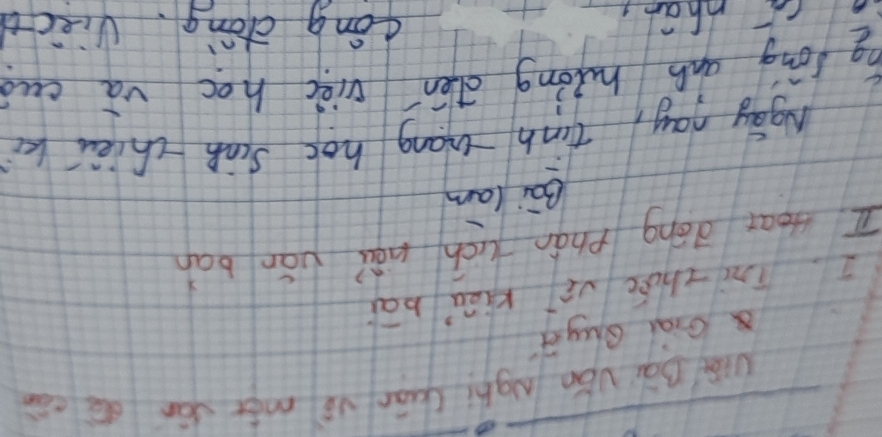 Viết Bài Văn Nghị Luận về một vấn đề cần
& Giải Quyết
I Tri thức về kiểu bài
II Hoạt động phân tích kiểu văn bản
Bài làm
Ngày nay, tình trạng học sinh thiếu kĩ
sống ảnh hưởng đến việc học và cuộ
nhân, cộng đồng. Việc